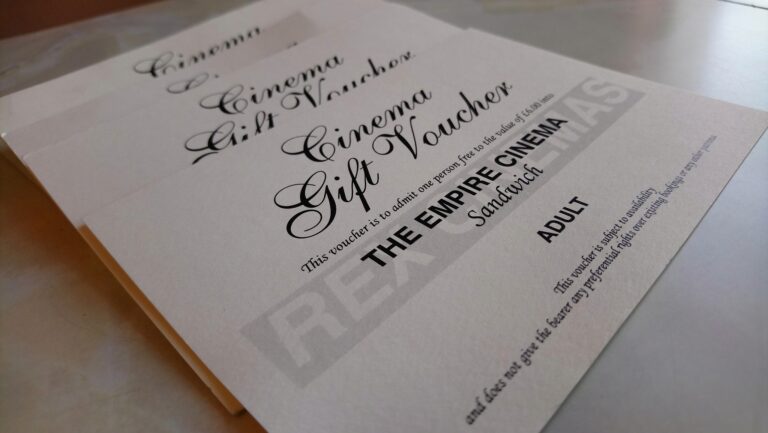 Cinema
Cinema
Gift Voucher
Cinema
Gift Voucher
This voucher is to admit one person free to the value of £6.00 only
THE EMPIRE CINEMA
Sandwich
REX CINEMAS
ADULT
This voucher is subject to availability
and does not give the bearer any preferential rights over existing bookings or any other patrons